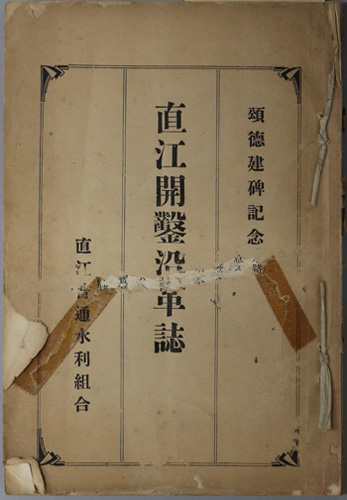 頌德建碑記念
直江開鑿沿革誌
直江普通水利組合